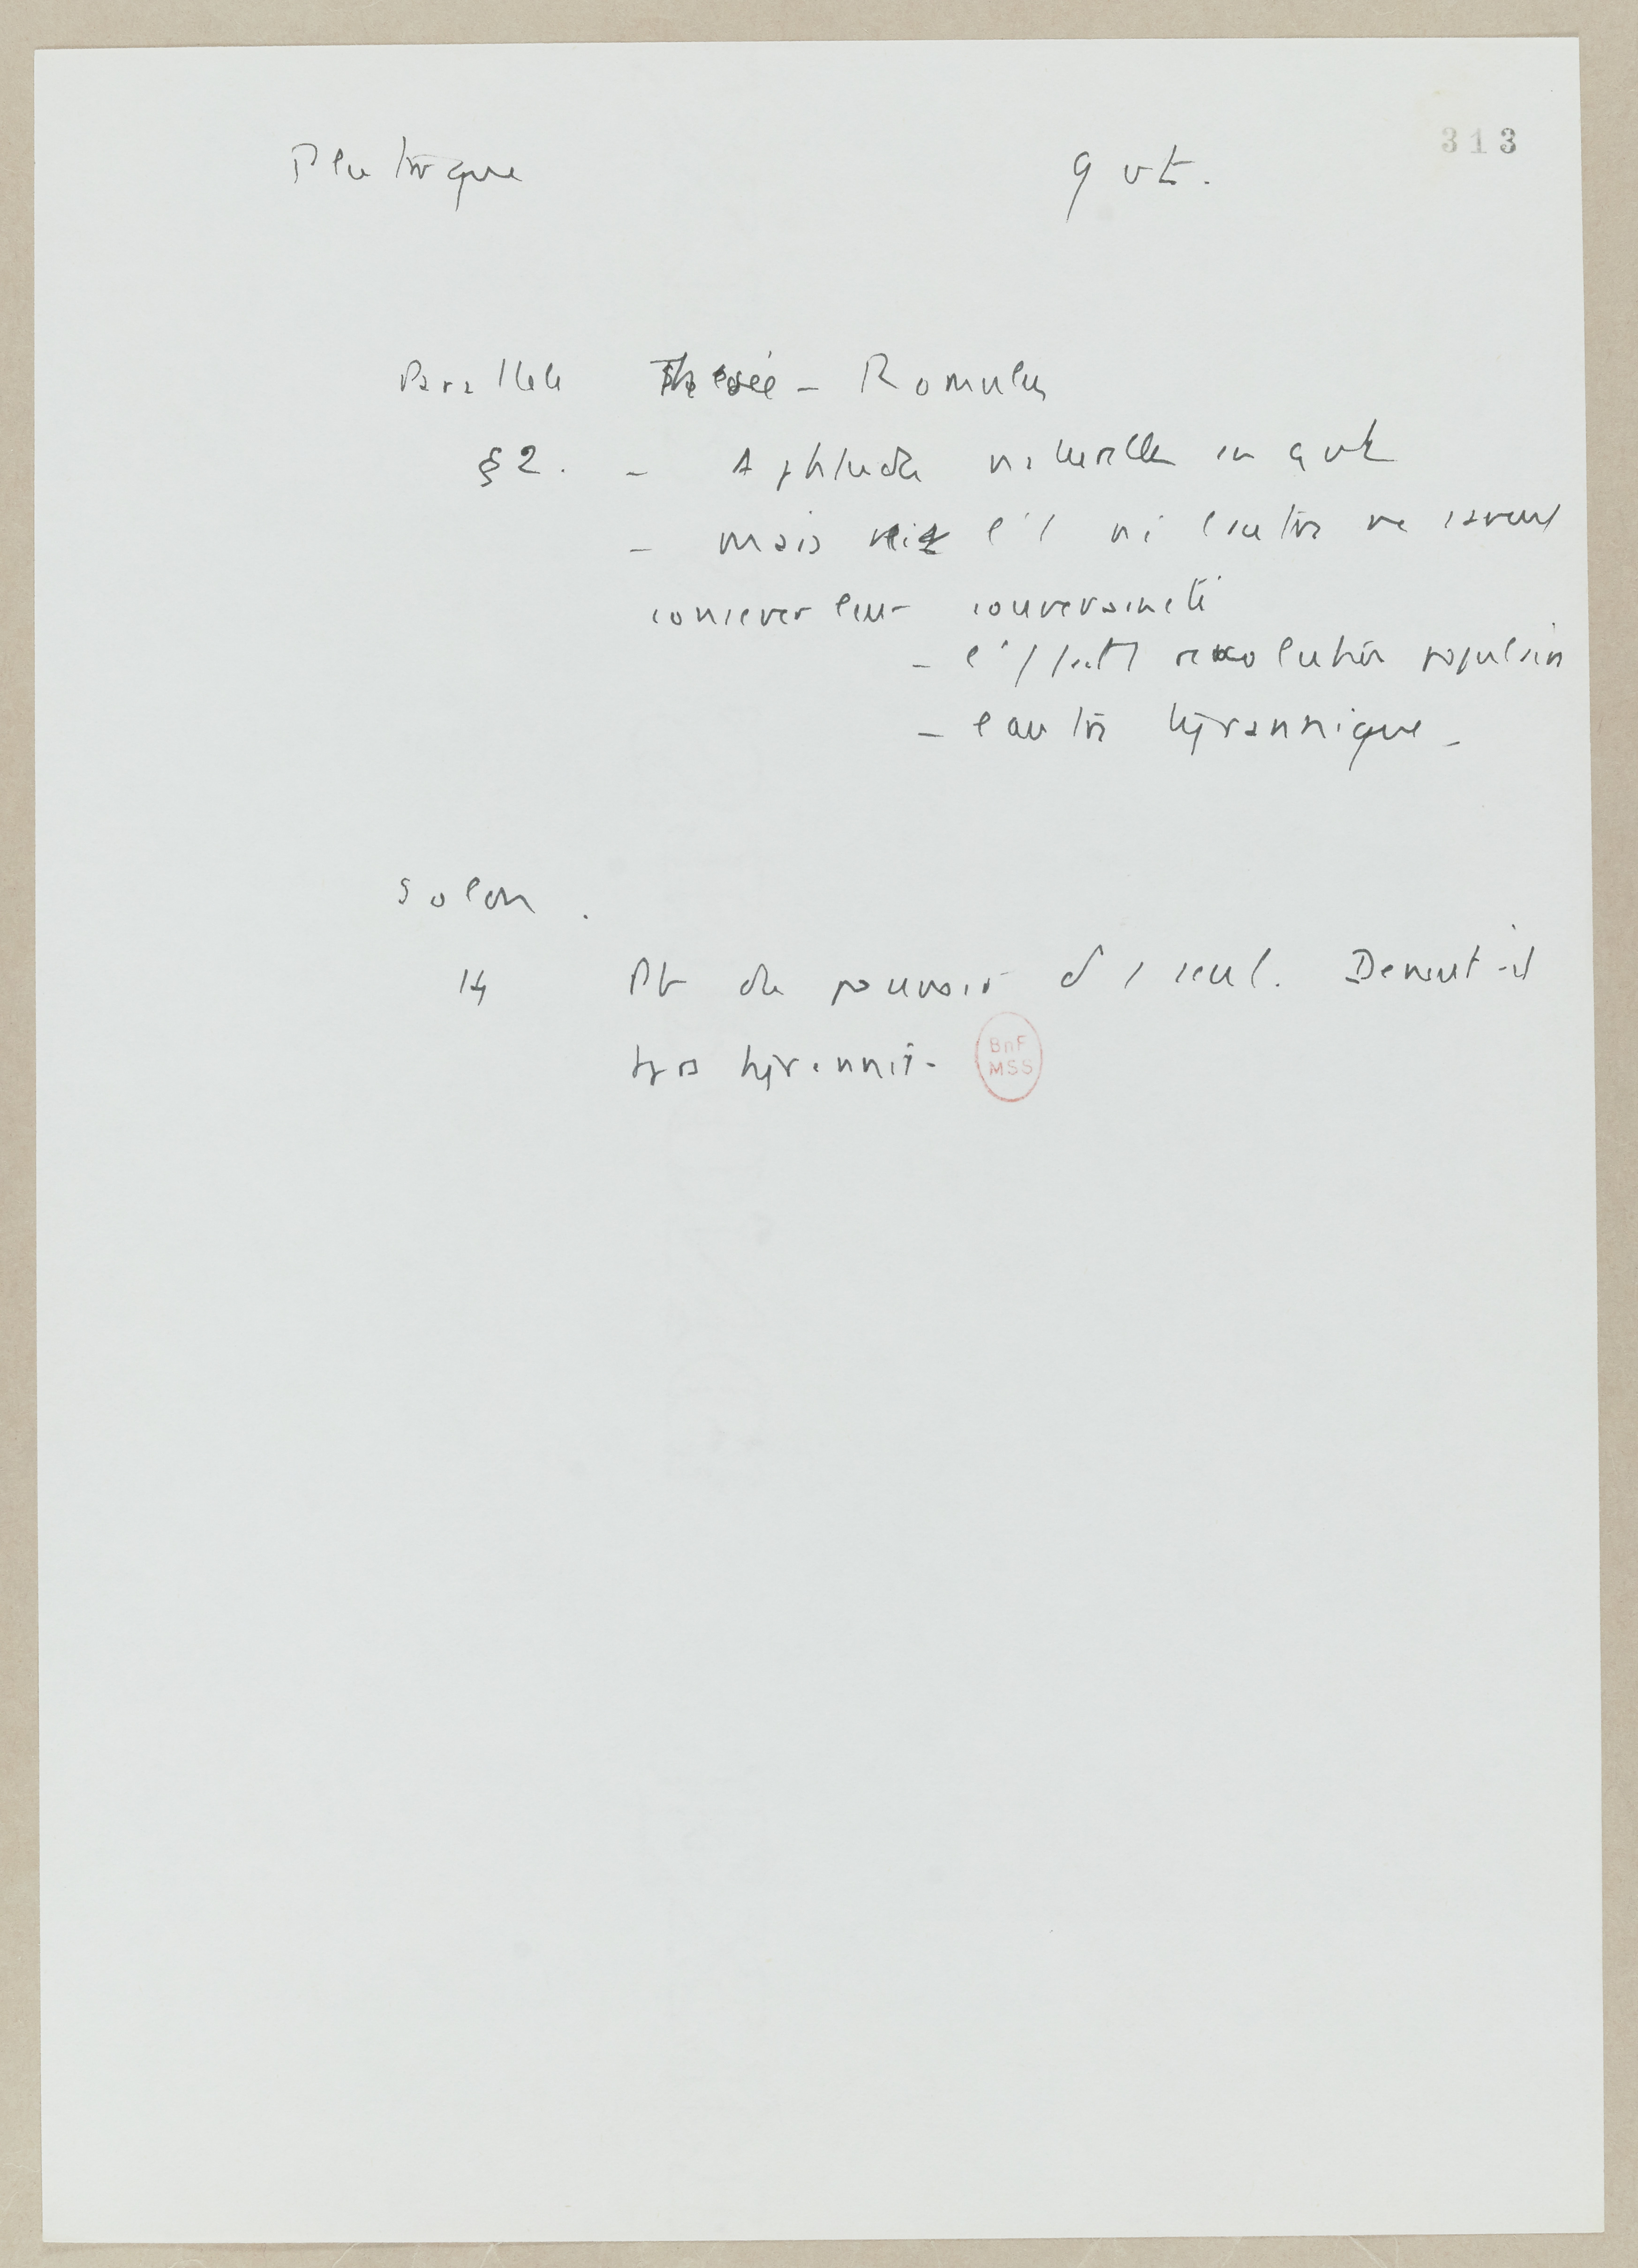 313
Plutarque gvt.
Parallele Thésée - Romulus
§2. - Aptitude naturelle au gvt
- mais l'1 ni l'autre ne savent
conserver leur souveraineté
- l'1 révolution populaire
- l'autre tyrannique -
Solon.
14 Pb du pouvoir d'1 seul. Devient-il
tjrs tyrannie.
BnF
MSS